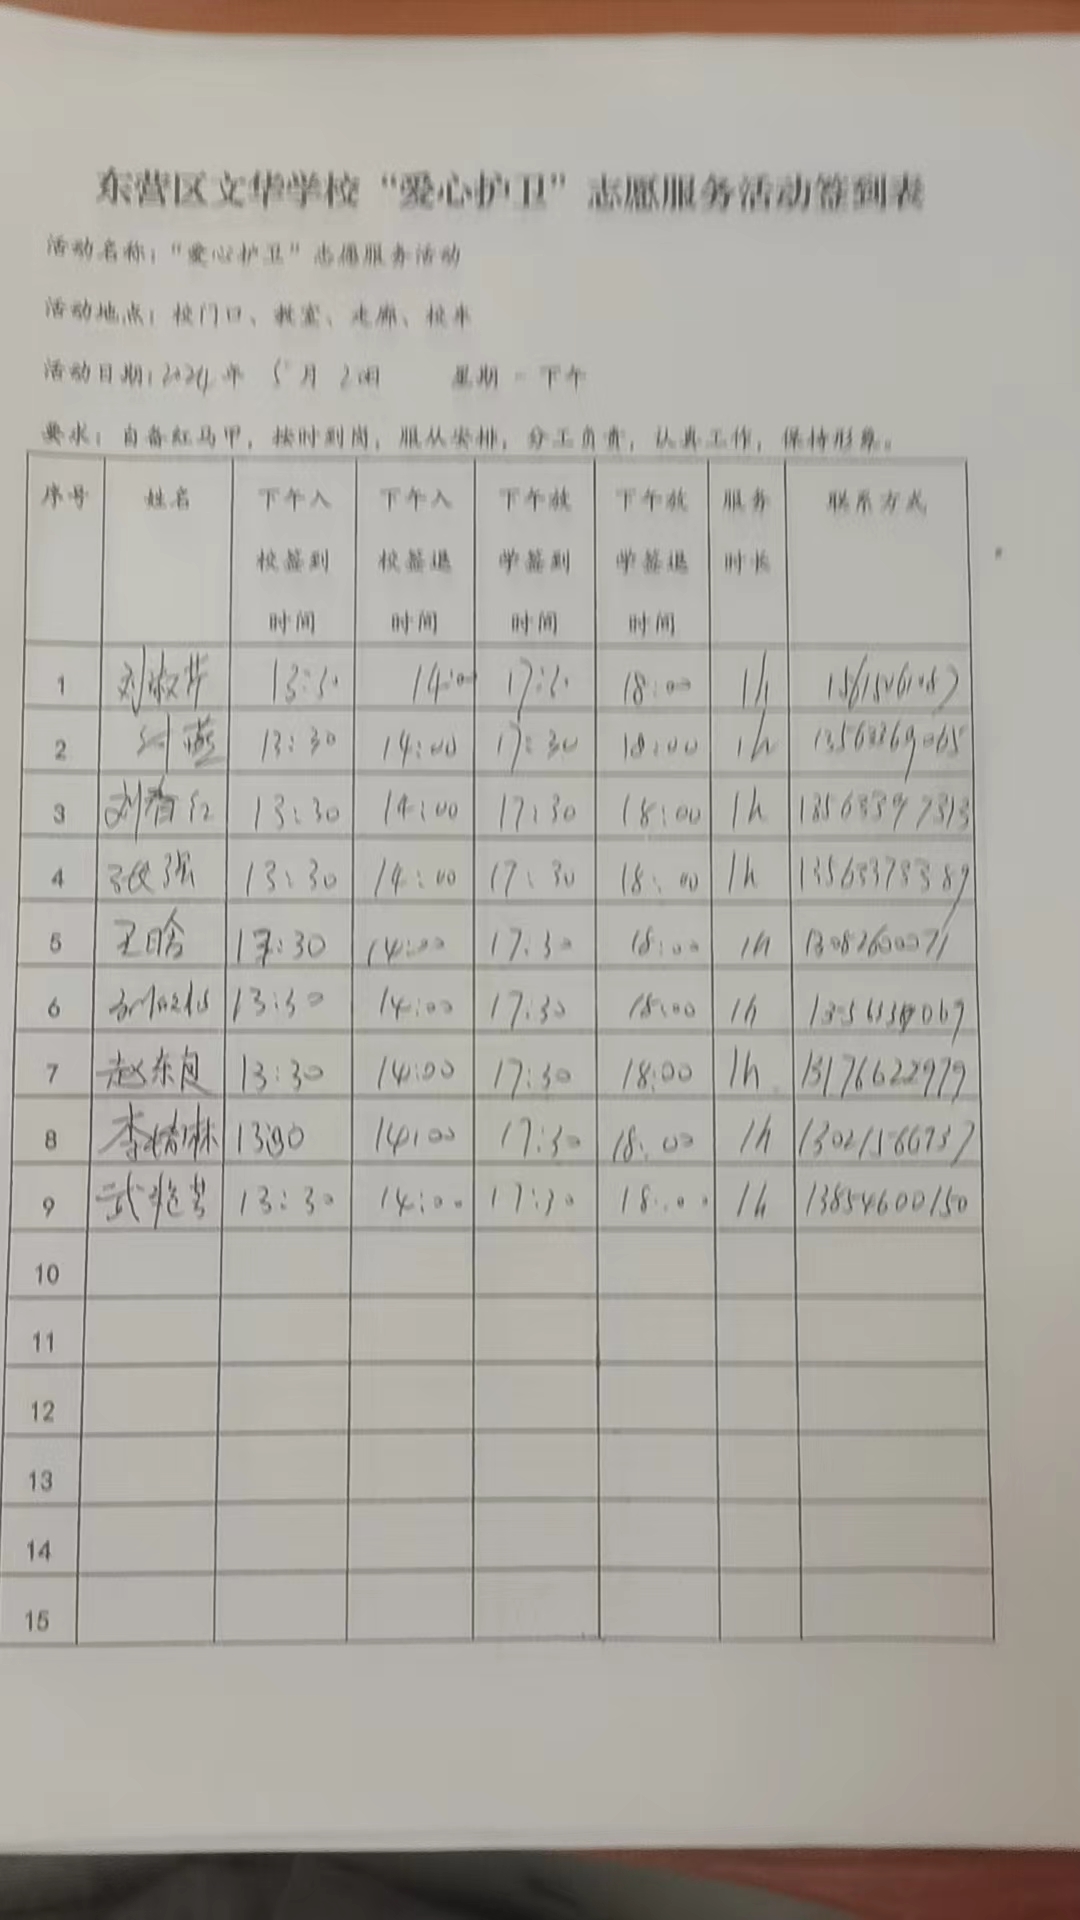 东营区文华学校“爱心护卫”志愿服务活动签到表
活动名称：“爱心护卫”志愿服务活动
活动地点：校门口、教室、走廊、校车
活动日期：2024年 5月20日 星期一下午
要求：自备红马甲，按时到岗，服从安排，分工负责，认真工作，保持形象。
序号 姓名 下午入校签到时间 下午入校签退时间 下午放学签到时间 下午放学签退时间 服务时长 联系方式
1 刘淑芹 13:30 14:00 17:30 18:00 1h
2 刘燕 13:30 14:00 17:30 18:00 1h 13563369065
3 刘春红 13:30 14:00 17:30 18:00 1h 13563397313
4 张强 13:30 14:00 17:30 18:00 1h 13563373389
5 王晗 17:30 14:00 17:30 18:00 1h 13082600071
6 13:30 14:00 17:30 18:00 1h
7 赵东良 13:30 14:00 17:30 18:00 1h 13176622979
8 李婧琳 13:30 14:00 17:30 18:00 1h 13021566737
9 武艳芳 13:30 14:00 17:30 18:00 1h 13854600150
10
11
12
13
14
15